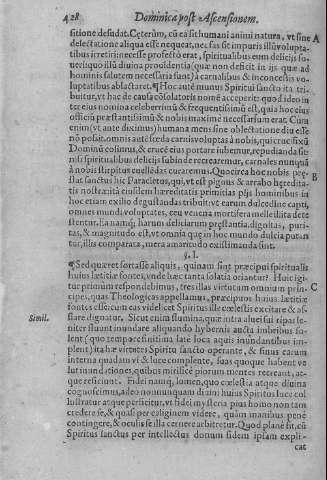 428 Dominica post Ascensionem.
sitione desudat. Cęterùm, cũ ea sit humani animi natura, vt sine A
delectatione aliqua esse nequeat, nec fas sit impuris illũ volupta-
tibus irretiri: necesse profectò erat, spiritualibus eum delicijs fo-
ueri: quo illi diuina prouidentia (quæ non deficit in ijs quæ ad
hominis salutem necessaria sunt) à carnalibus & inconcessis vo-
luptatibus ablactaret. ¶ Hoc autẽ munus Spiritui sancto ita tri-
buitur, vt hac de causa cõsolatoris nomẽ acceperit: quod ideo in-
ter eius nomina celeberrimũ & frequentissimũ est, quia hoc eius
officiũ præstantissimũ & nobis maximè necessarium erat. Cùm
enim (vt ante diximus) humana mens sine oblectatione diu esse
nõ possit, omnis autẽ fœda carnis voluptas à nobis, qui crucifixũ
Dominũ colimus, & crucẽ eius portare iubemur, repudianda sit:
nisi spiritualibus delicijs subinde recrearemur, carnales nunquã
à nobis stirpitus euellẽdas curaremus. Quocirca hoc nobis pręs-
stat sanctus hic Paracletus, qui, vt est pignus & arrabo hęredita- B
tis nostræ: ita eiusdem hæreditatis primitias pijs hominibus in
hoc etiam exilio degustandas tribuit: vt earum dulcedine capti,
omnes mundi voluptates, ceu venena mortifera melle illita dete
stentur. Ea namq; harum deliciarum pręstantia, dignitas, puri-
tas, & magnitudo est, vt omnia quæ in hoc mundo dulcia putan
tur, illis comparata, mera amaritudo existimanda sint.
§. I.
¶ Sed quæret fortasse aliquis, quinam sint præcipui spiritualis
huius lætitiæ fontes, vnde hæc tanta solatia oriantur? Huic igi-
tur primùm respondebimus, tres illas virtutum omnium prin- C
cipes, quas Theologicas appellamus, præcipuos huius lætitiæ
fontes esse: cum eas videlicet Spiritus ille cœlestis excitare & af-
Simil. flare dignatur. Sicut enim flumina, quæ intra aluei sui ripas le-
niter fluunt inundare aliquando hybernis aucta imbribus so-
lent (quo tempore finitima latè loca aquis inundantibus im
plent) ita hæ virtutes Spiritu sancto operante, & sinus earum
interna quadam vi & luce complente, suas quoque habent ve
lut inundationes, quibus mirificè piorum mentes recreant, at-
que reficiunt. Fidei namq; lumen, quo cœlestia atque diuina
cognoscimus, adeò nonnunquam diuini huius Spiritus luce col
lustratur atque perficitur, vt fidei mysteria pius homo non tam
credere se, & quasi per caliginem videre, quàm manibus penè
contingere, & oculis se illa cernere arbitretur. Quod planè fit, cũ
Spiritus sanctus per intellectus donum fidem ipsam expli-
cat